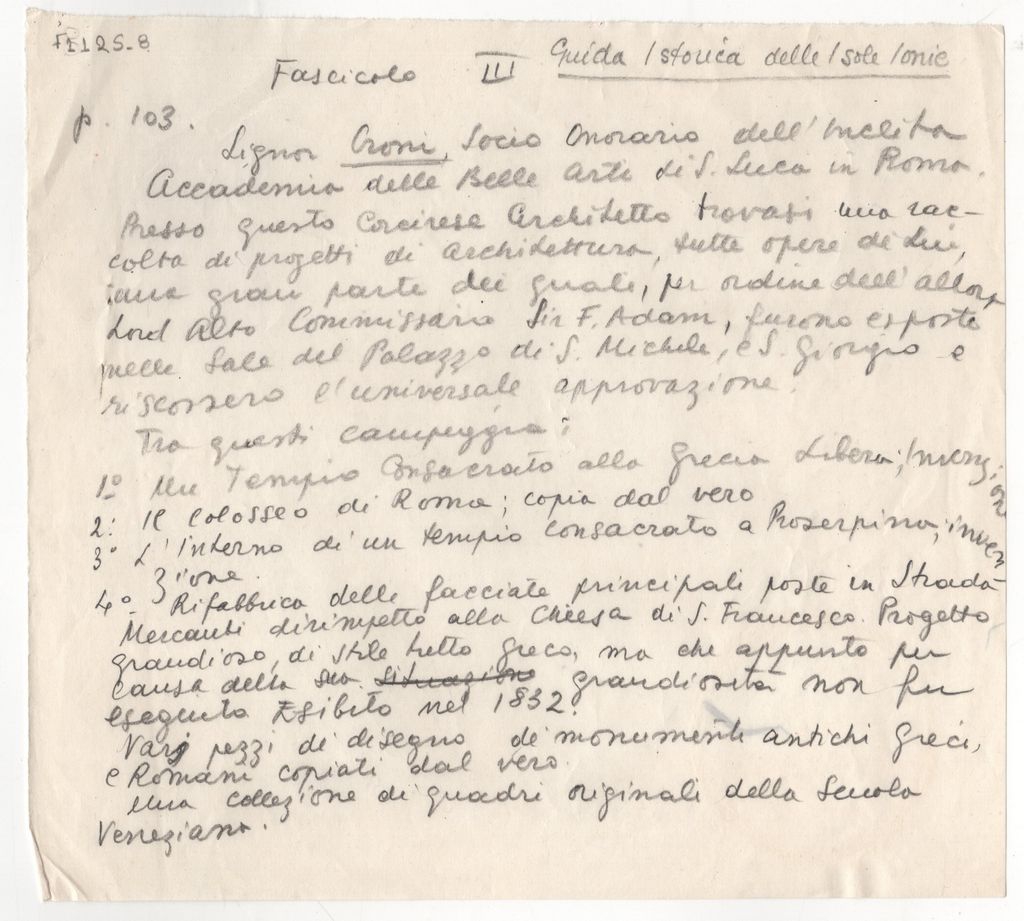 FE125-8
Fascicolo III Guida Istorica delle Isole Ionie
p. 103.
Signor Croni, Socio Onorario dell'Inclita
Accademia delle Belle Arti di S. Luca in Roma.
Presso questo Corcirese Architetto trovasi una rac-
colta di progetti di architettura, tutte opere di Lui,
una gran parte dei quali, per ordine dell'allora
Lord Alto Commissario Sir F. Adam, furono esposte
nelle Sale del Palazzo di S. Michele, e S. Giorgio e
riscossero l'universale approvazione.
Tra questi campeggia:
1º Un Tempio Consacrato alla Grecia Libera; Invenzione
2: Il Colosseo di Roma; copia dal vero
3º L'Interno di un tempio consacrato a Proserpina; inven
zione.
4º Rifabbrica delle facciate principali poste in Strada
Mercanti dirimpetto alla Chiesa di S. Francesco. Progetto
grandioso, di stile tutto Greco, ma che appunto per
causa della sua situazione grandiosità non fu
eseguito Esibito nel 1832.
Varj pezzi di disegno de' monumenti antichi Greci,
e Romani copiati dal vero.
Una collezione di quadri originali della Scuola
Veneziana.